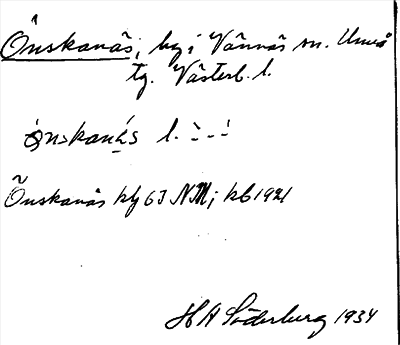 Önskanäs, by i Vännäs sn. Umeå
tg. Västerb. l.
Önskanäs l.
Önskanäs kly 63 NM; kb 1921
H A Söderberg 1934